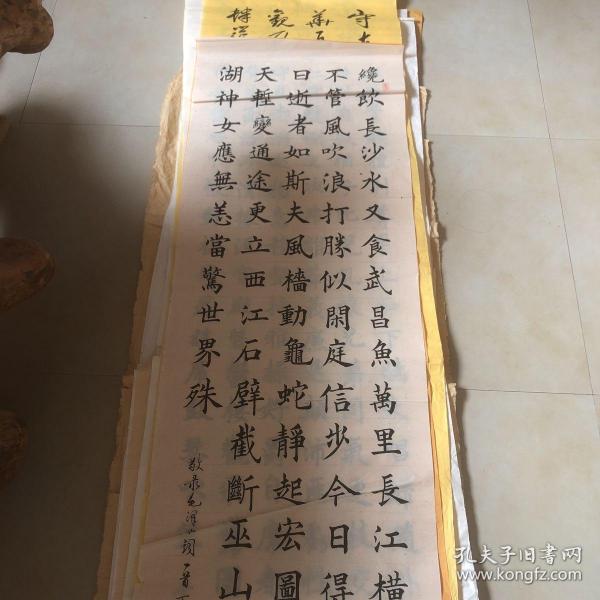 纔飲長沙水又食武昌魚萬里長江橫
不管風吹浪打勝似閑庭信步今日得
曰逝者如斯夫風檣動龜蛇靜起宏圖
天塹變通途更立西江石壁截斷巫山
湖神女應無恙當驚世界殊
敬录毛泽东词一首
孔夫子旧书网
www.kongfz.com